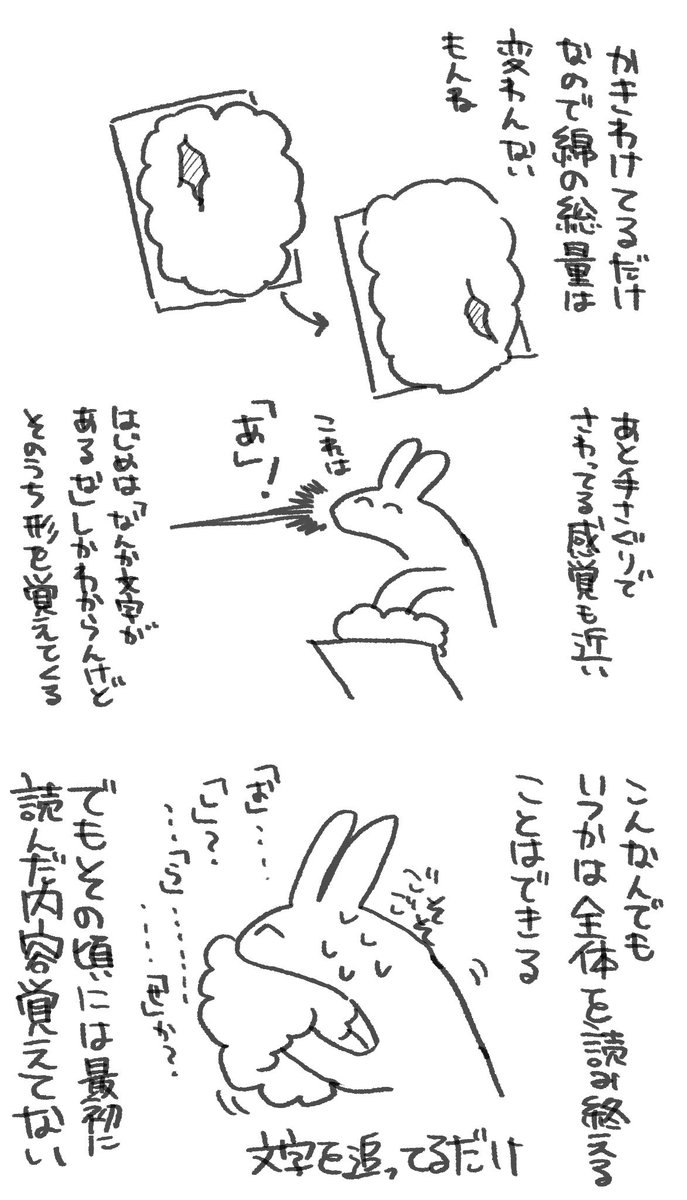 かきわけてるだけ
なので綿の総量は
変わんない
もんね
あと手さぐりで
さわってる感覚も近い
これは
「あ」！
はじめは「なんか文字が
あるな」しかわからんけど
そのうち形を覚えてくる
こんなんでも
いつかは全体を読み終える
ことはできる
ごそ
ごそ
「お」……
「し」？
……「ら」………
……「せ」か？
文字を追ってるだけ
でもその頃には最初に
読んだ内容覚えてない